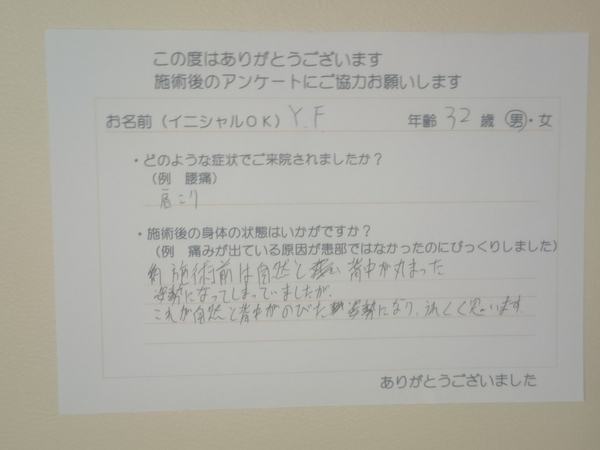 この度はありがとうございます
施術後のアンケートにご協力お願いします
お名前(イニシャルOK) Y.F 年齢 32 歳 男・女
・どのような症状でご来院されましたか？
(例 腰痛)
肩こり
・施術後の身体の状態はいかがですか？
(例 痛みが出ている原因が患部ではなかったのにびっくりしました)
施術前は自然と 背中が丸まった
姿勢になってしまっていましたが、
これが自然と背中がのびた 姿勢になり、うれしく思います
ありがとうございました